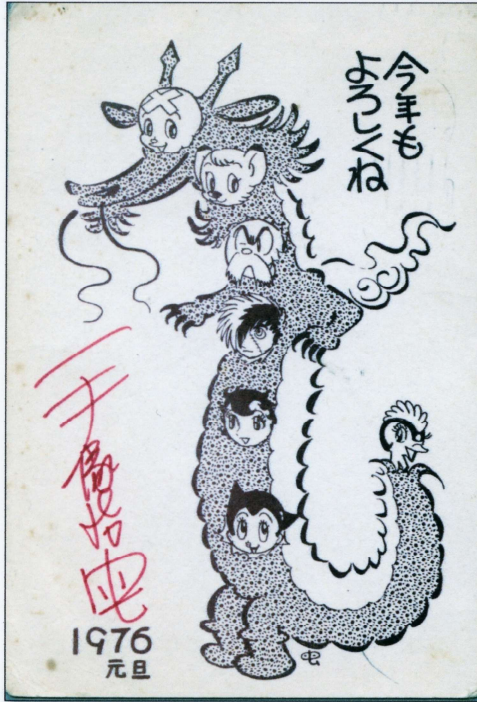 今年も
よろしくね
手塚治虫
1976
元旦